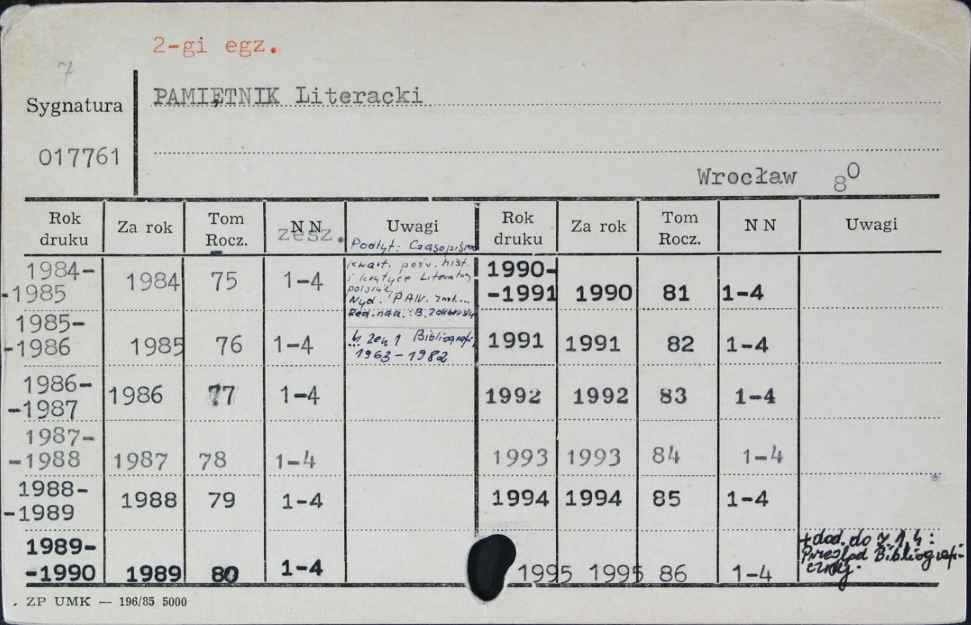 2-gi egz.
7
Sygnatura
PAMIĘTNIK Literacki
017761
Wrocław 8⁰
Rok druku Za rok Tom Rocz. N N zesz. Uwagi Rok druku Za rok Tom Rocz. N N Uwagi
1984-
-1985 1984 75 1-4
Podtyt.: Czasopismo
kwart. pośw. hist.
i krytyce literatury
polskiej
Wyd.: PAN.
Red. nacz.: B.
1990-
-1991 1990 81 1-4
1985-
-1986 1985 76 1-4
1 Bibliografi
1963-1982
1991 1991 82 1-4
1986-
-1987 1986 77 1-4
1992 1992 83 1-4
1987-
-1988 1987 78 1-4
1993 1993 84 1-4
1988-
-1989 1988 79 1-4
1994 1994 85 1-4
1989-
-1990 1989 80 1-4
1995 1995 86 1-4
+dod. do z. 1, 4:
Przegląd Bibliografi-
czny.
ZP UMK — 196/85 5000